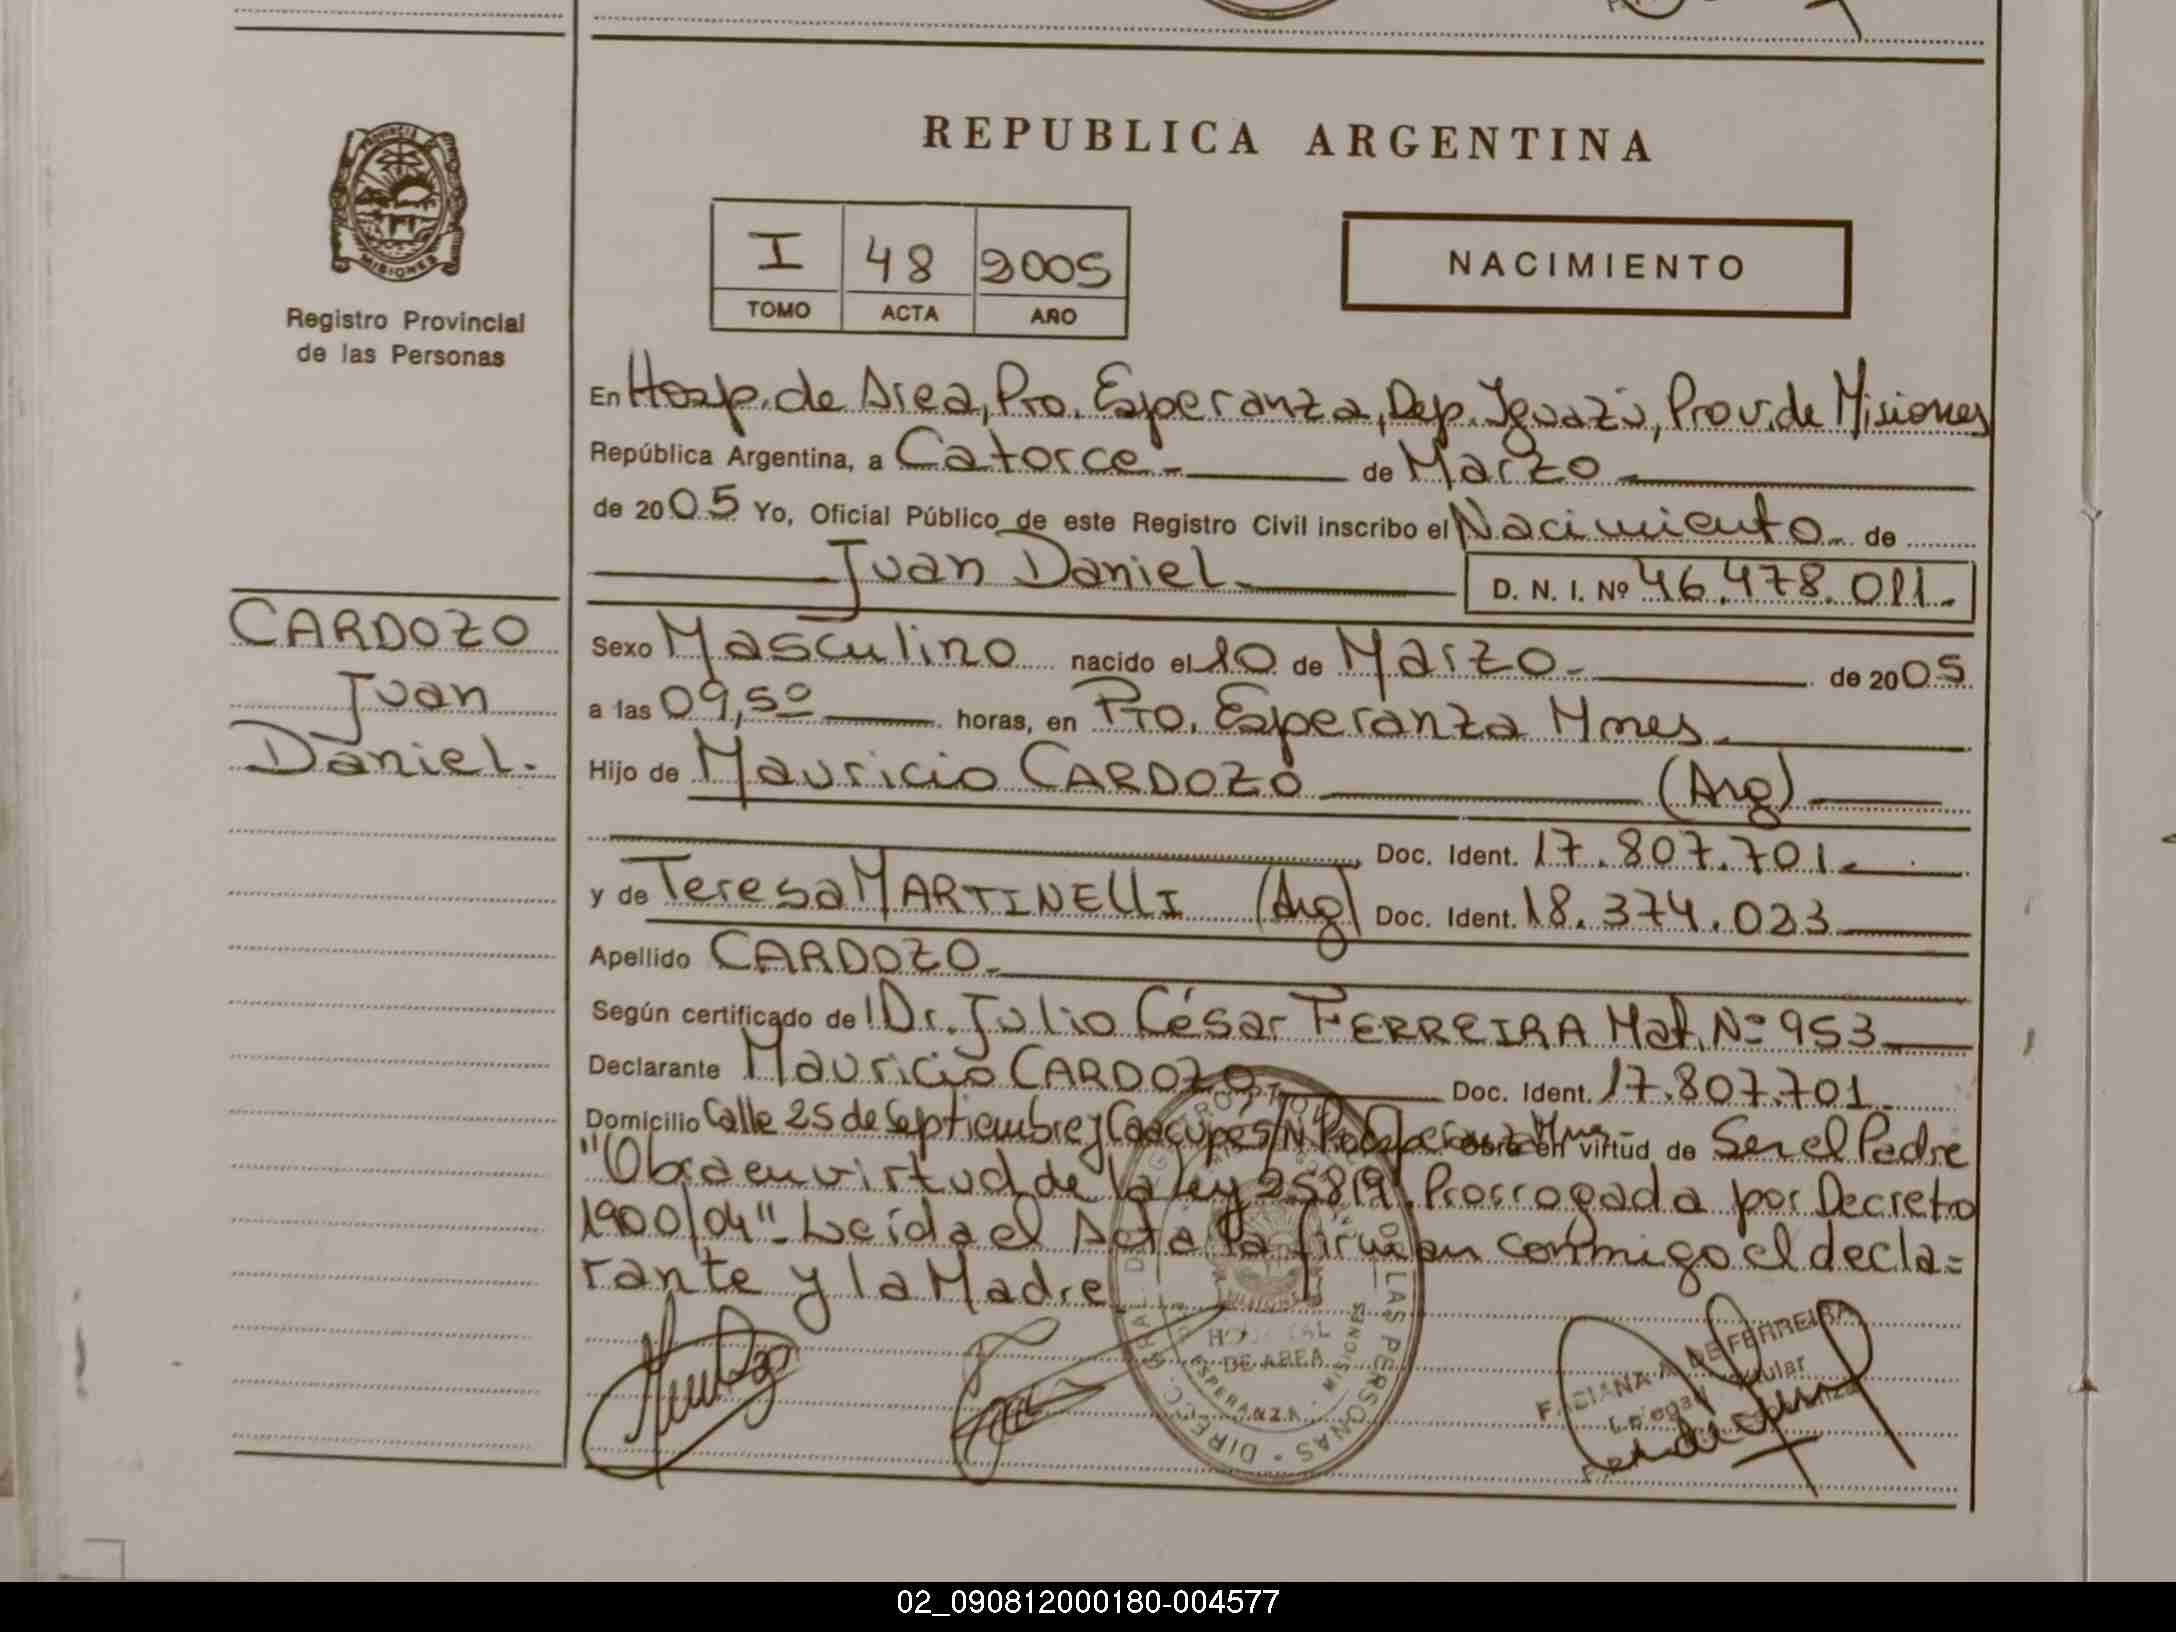 PROVINCIA DE
MISIONES
Registro Provincial
de las Personas
REPUBLICA ARGENTINA
I 48 2005
TOMO ACTA AÑO
NACIMIENTO
En Hosp. de Area, Pto. Esperanza, Dep. Iguazú, Prov. de Misiones
República Argentina, a Catorce de Marzo
de 2005 Yo, Oficial Público de este Registro Civil inscribo el Nacimiento de
Juan Daniel D. N. I. Nº 46.478.011.
CARDOZO
Juan
Daniel.
Sexo Masculino nacido el 10 de Marzo de 2005
a las 09,50 horas, en Pto. Esperanza Mnes.
Hijo de Mauricio CARDOZO (Arg)
Doc. Ident. 17.807.701.
y de Teresa MARTINELLI (Arg) Doc. Ident. 18.374.023
Apellido CARDOZO.
Según certificado de Dr. Julio César FERREIRA Mat. Nº 953
Declarante Mauricio CARDOZO Doc. Ident. 17.807.701.
Domicilio Calle 25 de Septiembre y Caacupé S/N Pto. Esperanza Mnes. obra en virtud de Ser el Padre
"Obra en virtud de la Ley 25819. Prorrogada por Decreto
1900/04". Leída el Acta la firman conmigo el decla=
rante y la Madre.
HOSPITAL
DE AREA
ESPERANZA - MISIONES
DE LAS PERSONAS
FABIANA A. DE FERREIRA
02_090812000180-004577